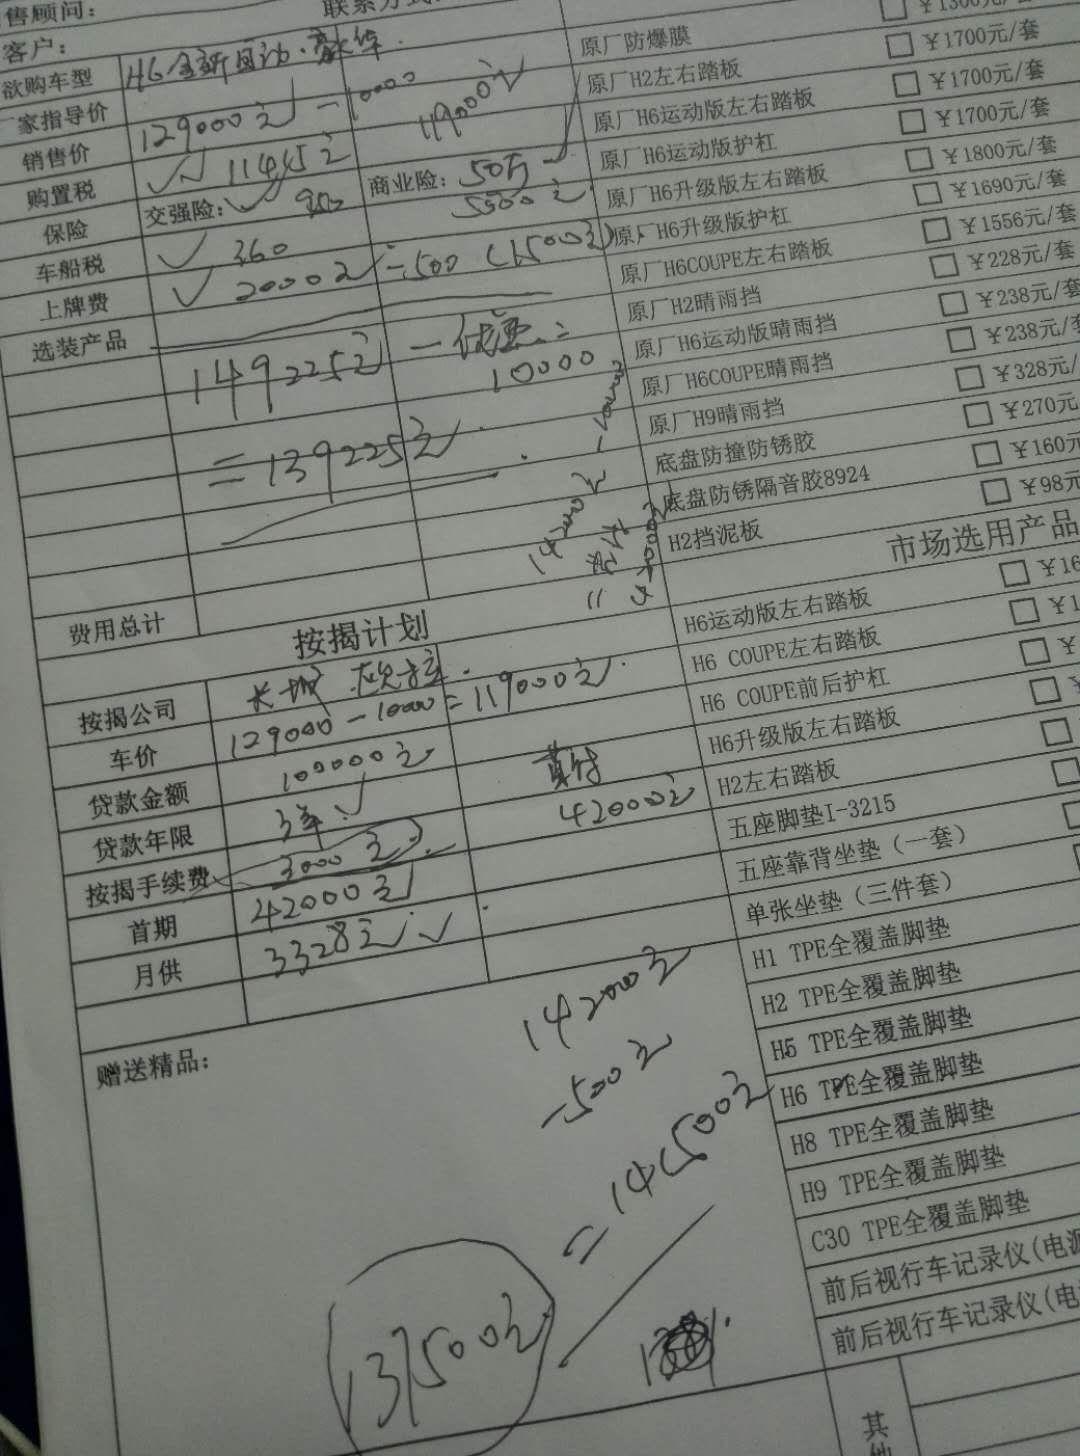 售顾问：
联系方式：
客户：
欲购车型
H6全新自动·豪华.
家指导价
129000元
-10000
119000元
销售价
购置税
11445元
保险
交强险：
950
商业险：
50万
5500元
车船税
360
上牌费
2000元
-500（1500元）
选装产品
149225元
-优惠:
10000
=139225元.
费用总计
142000元
-100000
=首付
42000元
按揭计划
按揭公司
长城
车价
129000-10000=119000元.
贷款金额
100000元
贷款年限
3年
首付
42000元
按揭手续费
3000元
首期
42000元
月供
3328元
赠送精品：
142000元
-500元
=141500元
137500元
￥1300元/套
原厂防爆膜
￥1700元/套
原厂H2左右踏板
￥1700元/套
原厂H6运动版左右踏板
￥1700元/套
原厂H6运动版护杠
￥1800元/套
原厂H6升级版左右踏板
￥1690元/套
原厂H6升级版护杠
￥1556元/套
原厂H6COUPE左右踏板
￥228元/套
原厂H2晴雨挡
￥238元/套
原厂H6运动版晴雨挡
￥238元/套
原厂H6COUPE晴雨挡
￥328元/
原厂H9晴雨挡
￥270元/
底盘防撞防锈胶
￥160元
底盘防锈隔音胶8924
￥98元
H2挡泥板
市场选用产品
￥16
H6运动版左右踏板
￥1
H6 COUPE左右踏板
￥
H6 COUPE前后护杠
￥
H6升级版左右踏板
H2左右踏板
五座脚垫I-3215
五座靠背坐垫（一套）
单张坐垫（三件套）
H1 TPE全覆盖脚垫
H2 TPE全覆盖脚垫
H5 TPE全覆盖脚垫
H6 TPE全覆盖脚垫
H8 TPE全覆盖脚垫
H9 TPE全覆盖脚垫
C30 TPE全覆盖脚垫
前后视行车记录仪(电源
前后视行车记录仪(电
其
他